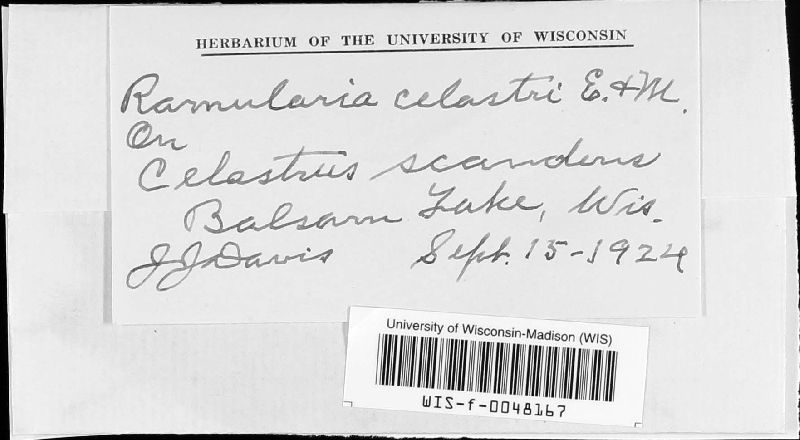 HERBARIUM OF THE UNIVERSITY OF WISCONSIN
Ramularia celastri E. & M.
On
Celastrus scandens
Balsam Lake, Wis.
J J Davis Sept. 15-1924
University of Wisconsin-Madison (WIS)
WIS-f-0048167